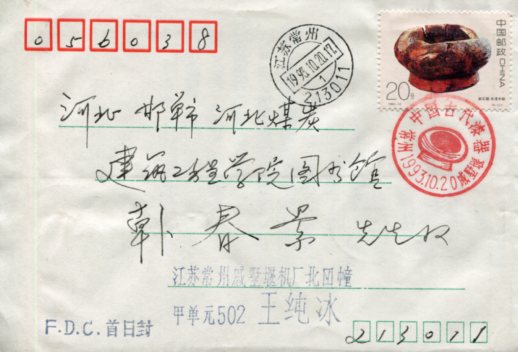 056038
江苏常州
1993.10.20.17
1
213011
中国邮政 CHINA
20分
中国古代漆器
常州1993.10.20戚墅堰
河北 邯郸市 河北煤炭
建筑工程学院图书馆
韩春景 先生收
江苏常州戚墅堰机厂北四幢
甲单元502 王纯冰
F.D.C.首日封
213011